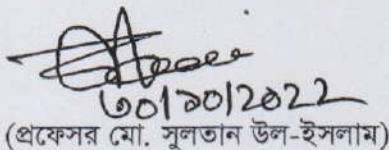 ৩০/১০/২০২২
(প্রফেসর মো. সুলতান উল-ইসলাম)